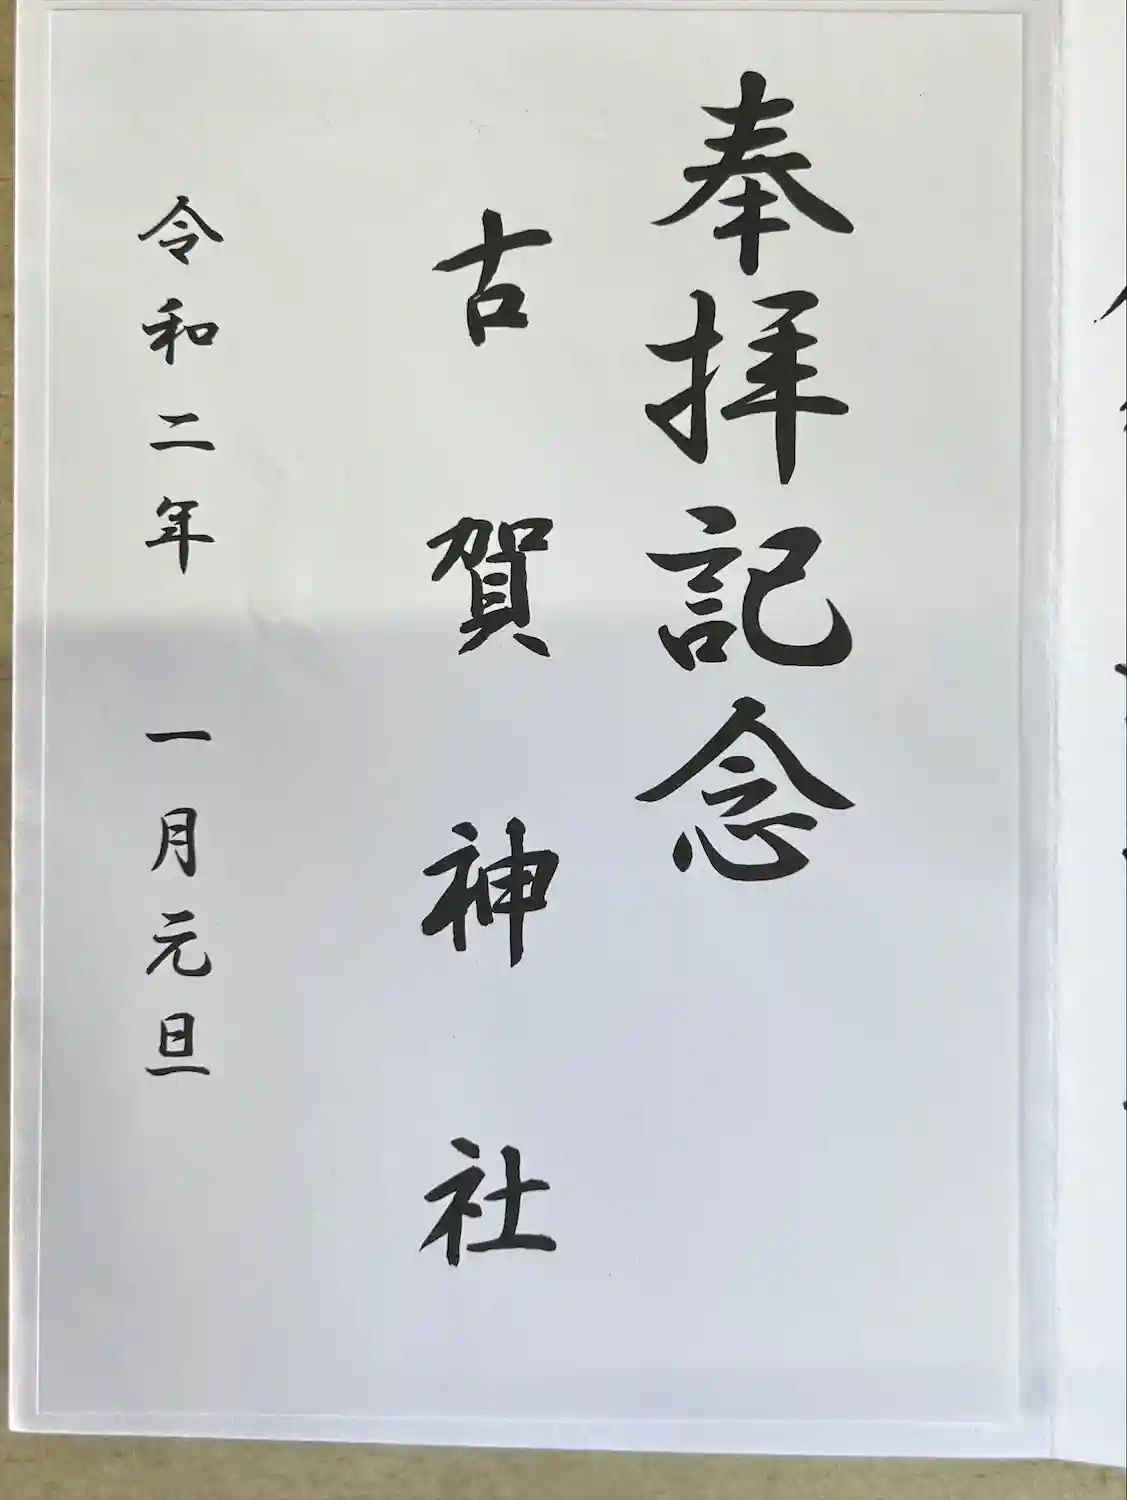 奉拝記念
古賀神社
令和二年 一月元旦